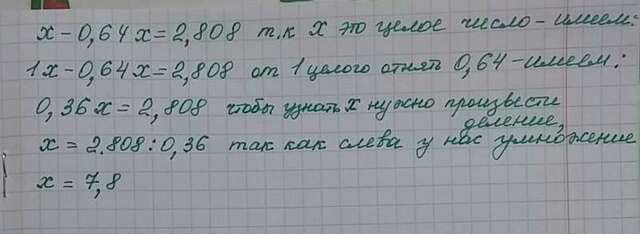 x - 0,64x = 2,808 т.к x это целое число - имеем:
1x - 0,64x = 2,808 от 1 целого отнять 0,64 - имеем:
0,36x = 2,808 чтобы узнать x нужно произвести
деление,
x = 2.808 : 0,36 так как слева у нас умножение
x = 7,8